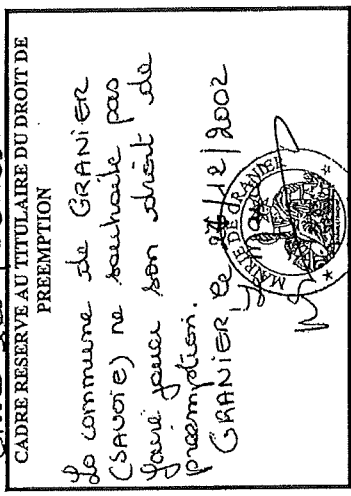 CADRE RESERVE AU TITULAIRE DU DROIT DE
PREEMPTION
La commune de GRANIER
(SAVOIE) ne souhaite pas
faire jouer son droit de
preemption.
GRANIER, le /12/2002
Le maire
MAIRIE DE GRANIER